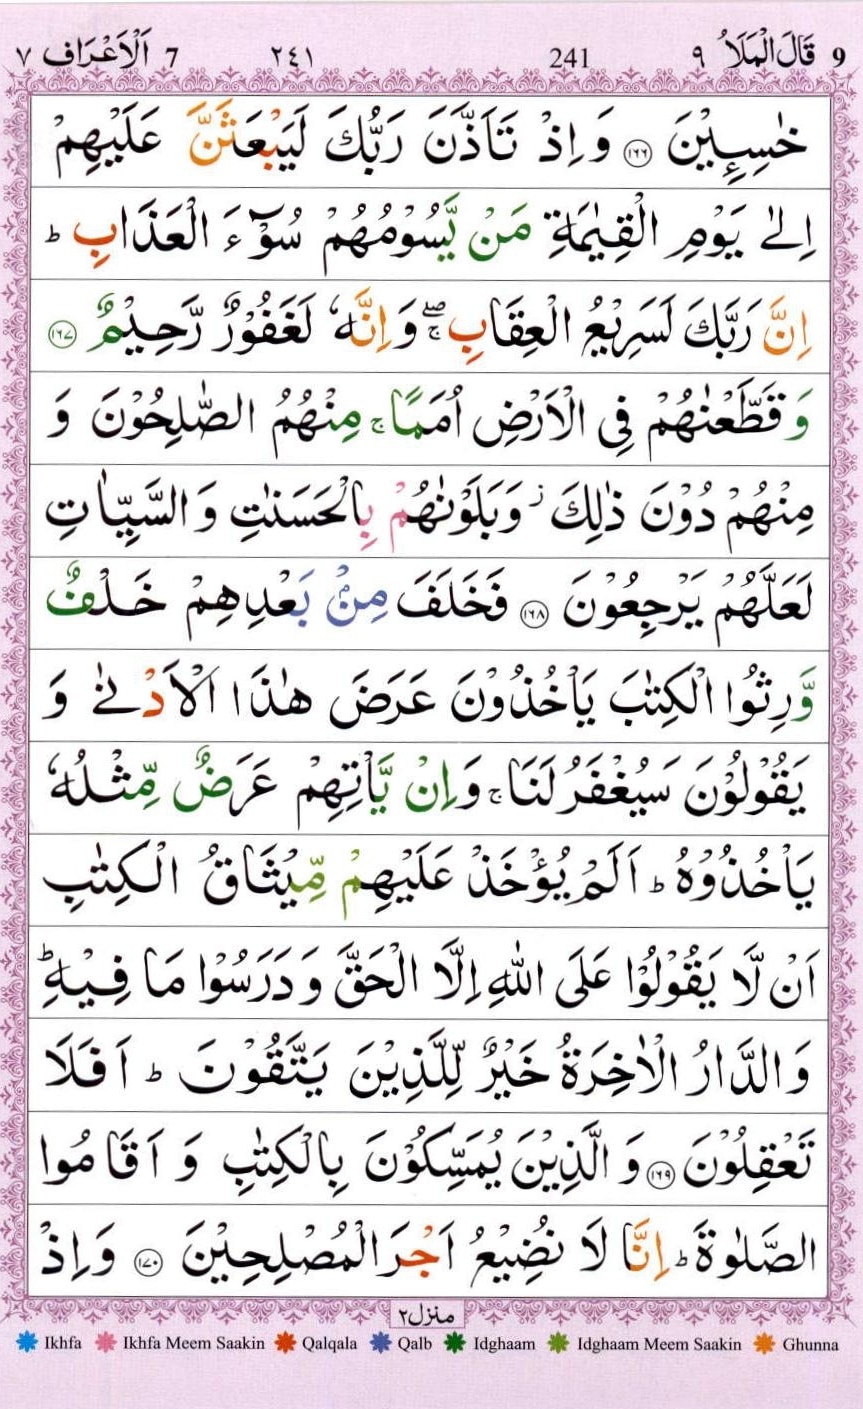 9 قَالَ الْمَلَاُ ٩ 241 ٢٤١ 7 اَلْاَعْرَاف ٧
خٰسِـِٕيْنَ ١٦٦ وَاِذْ تَاَذَّنَ رَبُّكَ لَيَبْعَثَنَّ عَلَيْهِمْ
اِلٰى يَوْمِ الْقِيٰمَةِ مَنْ يَّسُوْمُهُمْ سُوْٓءَ الْعَذَابِ ؕ
اِنَّ رَبَّكَ لَسَرِيْعُ الْعِقَابِ ۖۚ وَاِنَّهٗ لَغَفُوْرٌ رَّحِيْمٌ ١٦٧
وَقَطَّعْنٰهُمْ فِى الْاَرْضِ اُمَمًا ۚ مِنْهُمُ الصّٰلِحُوْنَ وَ
مِنْهُمْ دُوْنَ ذٰلِكَ ؗ وَبَلَوْنٰهُمْ بِالْحَسَنٰتِ وَالسَّيِّاٰتِ
لَعَلَّهُمْ يَرْجِعُوْنَ ١٦٨ فَخَلَفَ مِنْۢ بَعْدِهِمْ خَلْفٌ
وَّرِثُوا الْكِتٰبَ يَاْخُذُوْنَ عَرَضَ هٰذَا الْاَدْنٰى وَ
يَقُوْلُوْنَ سَيُغْفَرُ لَنَا ۚ وَاِنْ يَّاْتِهِمْ عَرَضٌ مِّثْلُهٗ
يَاْخُذُوْهُ ؕ اَلَمْ يُؤْخَذْ عَلَيْهِمْ مِّيْثَاقُ الْكِتٰبِ
اَنْ لَّا يَقُوْلُوْا عَلَى اللّٰهِ اِلَّا الْحَقَّ وَدَرَسُوْا مَا فِيْهِ ؕ
وَالدَّارُ الْاٰخِرَةُ خَيْرٌ لِّلَّذِيْنَ يَتَّقُوْنَ ؕ اَفَلَا
تَعْقِلُوْنَ ١٦٩ وَالَّذِيْنَ يُمَسِّكُوْنَ بِالْكِتٰبِ وَاَقَامُوا
الصَّلٰوةَ ؕ اِنَّا لَا نُضِيْعُ اَجْرَ الْمُصْلِحِيْنَ ١٧٠ وَاِذْ
منزل ٢
Ikhfa Ikhfa Meem Saakin Qalqala Qalb Idghaam Idghaam Meem Saakin Ghunna